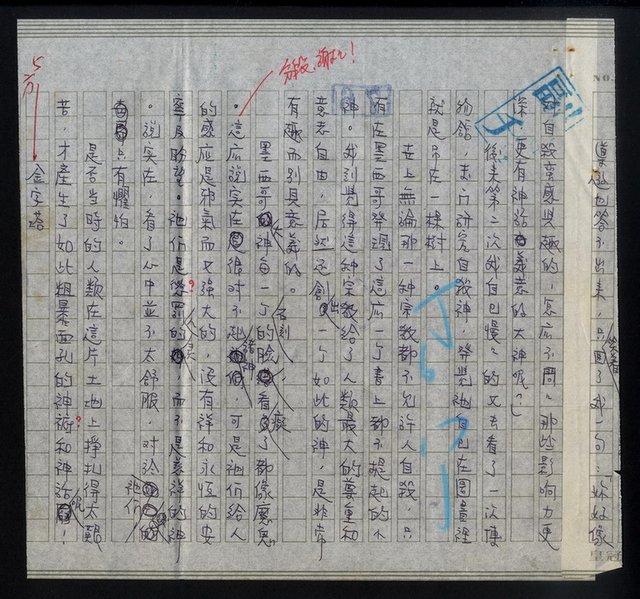 導遊也答不出來，只回了我一句：妳好像
對自殺蠻感興趣的，怎麼不問問那些影響力更
深、更有神話意義的大神呢？」
後來第二次我自己慢慢的又去看了一次博
物館，專門研究自殺神，發覺祂自己在圖畫裡
就是吊在一棵樹上。
世上無論那一種宗教都不允許人自殺，只
有在墨西哥發現了這麼一個書上都不提起的小
神。我倒覺得這種宗教給了人類最大的尊重和
意志自由，居然還創出一個如此的神，是非常
有趣而別具意義的。
墨西哥大神每一個的臉看了都像魔鬼
。這麼說實在很對不起諸神，可是祂們給人
的感應是邪氣而又強大的，沒有祥和永恆的安
寧及盼望。祂們是懲罰人類的，而不是慈祥的神
。說實在，看了心中並不太舒服，對於祂們
只有懼怕。
是否當時的人類在這片土地上掙扎得太艱
苦，才產生了如此粗暴面孔的神祇和神話呢！
金字塔
謝謝！
NO.
皇冠